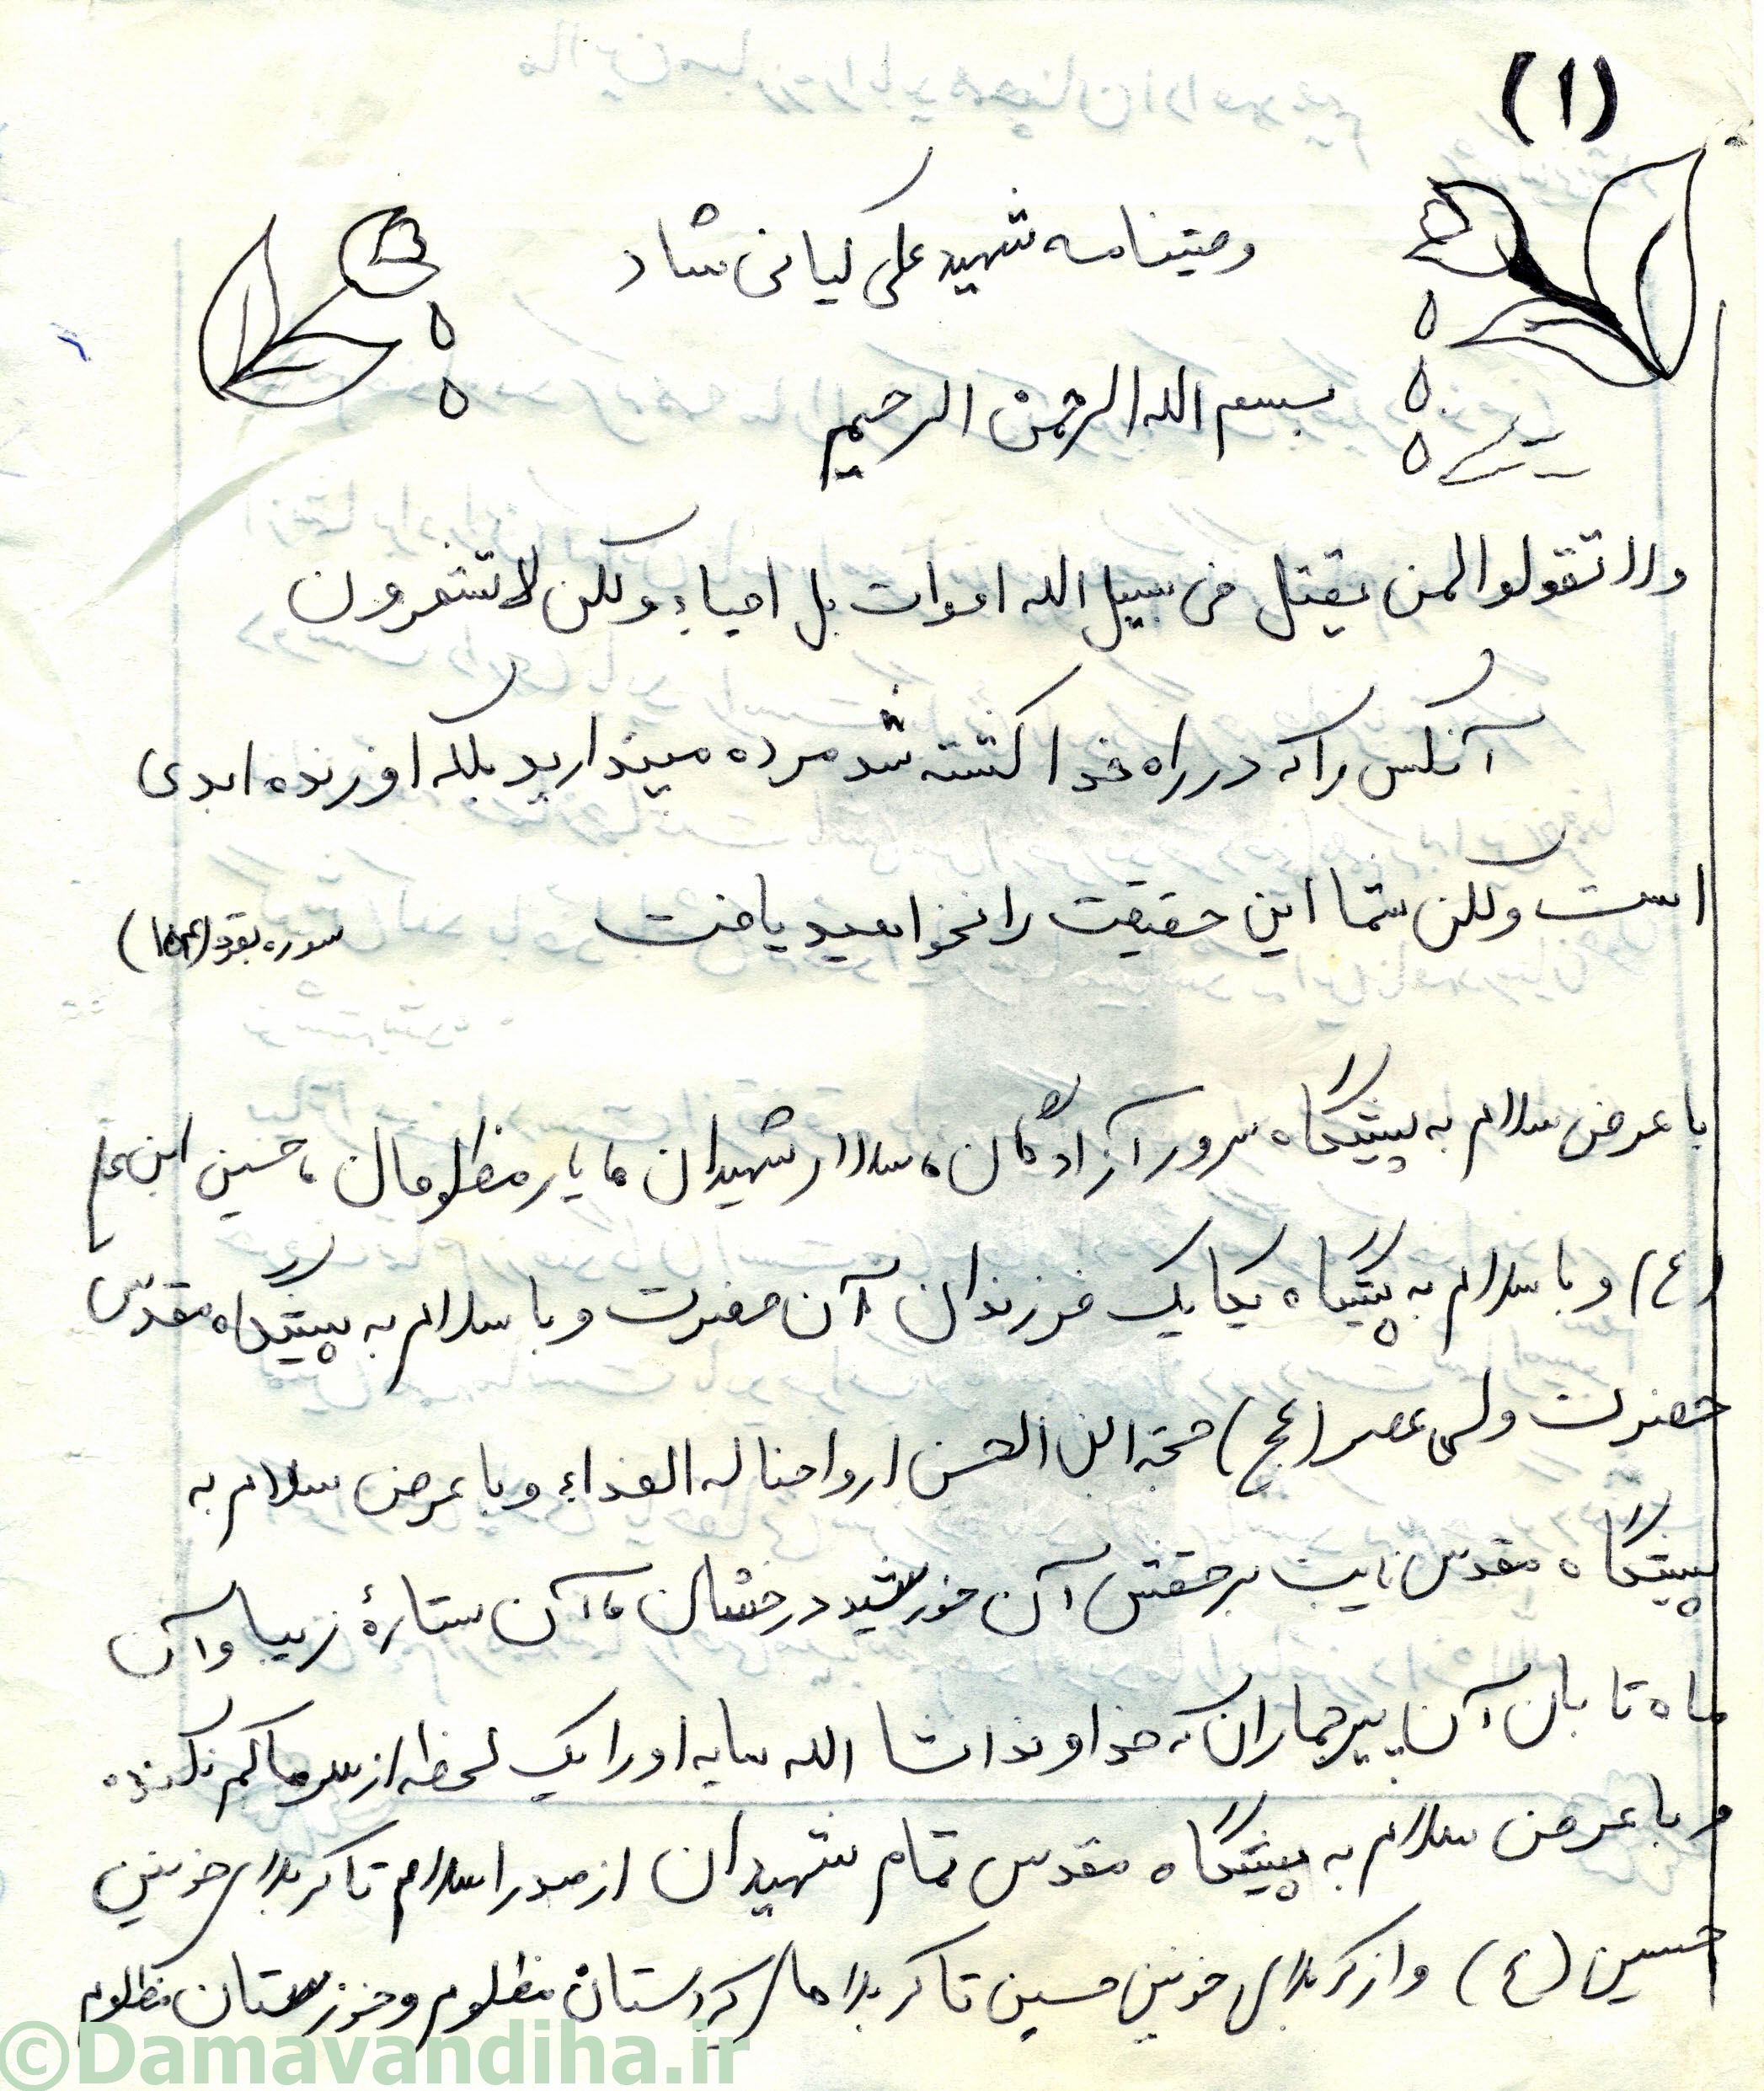 (۱)
وصیتنامه شهید علی کیانی شاد
بسم الله الرحمن الرحیم
ولا تقولوا لمن یقتل فی سبیل الله اموات بل احیاء ولکن لا تشعرون
آنکس را که در راه خدا کشته شد مرده مپندارید بلکه او زنده ابدی
است ولکن شما این حقیقت را نخواهید یافت سوره بقره (۱۵۴)
با عرض سلام به پیشگاه سرور آزادگان، سالار شهیدان، یار مظلومان، حسین ابن علی
(ع) و با سلام به پیشگاه یکایک فرزندان آن حضرت و با سلام به پیشگاه مقدس
حضرت ولی عصر (عج) حجة ابن الحسن ارواحنا له الفداء و با عرض سلام به
پیشگاه مقدس نایب برحقش آن خورشید درخشان، آن ستارهٔ زیبا و آن
ماه تابان آن پیر جماران که خداوند انشا الله سایه او را یک لحظه از سر ما کم نکند.
و با عرض سلام به پیشگاه مقدس تمام شهیدان از صدر اسلام تا کربلای خونین
حسین (ع) و از کربلای خونین حسین تا کربلاهای کردستان مظلوم و خوزستان مظلوم
©Damavandiha.ir